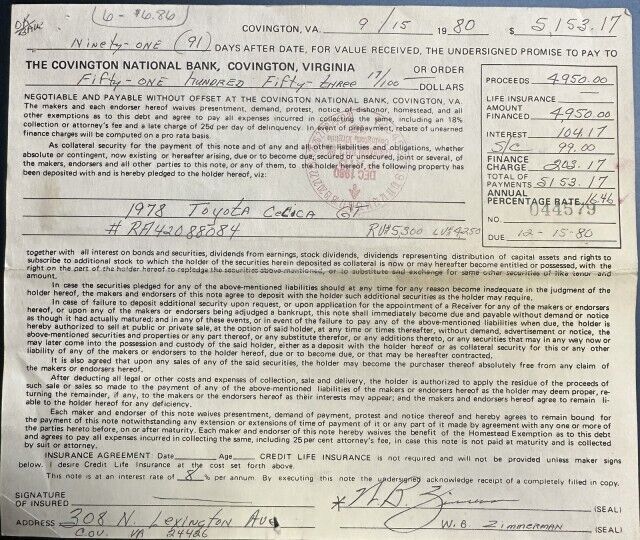 OK
6 - $6.86
COVINGTON, VA. 9/15 1980 $ 5,153.17
Ninety-one (91) DAYS AFTER DATE, FOR VALUE RECEIVED, THE UNDERSIGNED PROMISE TO PAY TO
THE COVINGTON NATIONAL BANK, COVINGTON, VIRGINIA OR ORDER
Fifty-one hundred Fifty-three 17/100 DOLLARS
NEGOTIABLE AND PAYABLE WITHOUT OFFSET AT THE COVINGTON NATIONAL BANK, COVINGTON, VA.
The makers and each endorser hereof waives presentment, demand, protest, notice of dishonor, homestead, and all
other exemptions as to this debt and agree to pay all expenses incurred in collecting the same, including an 18%
collection or attorney's fee and a late charge of 25¢ per day of delinquency. In event of prepayment, rebate of unearned
finance charges will be computed on a pro rata basis.
As collateral security for the payment of this note and of any and all other liabilities and obligations, whether
absolute or contingent, now existing or hereafter arising, due or to become due, secured or unsecured, joint or several, of
the makers, endorsers and all other parties to this note, or any of them, to the holder hereof, the following property has
been deposited with and is hereby pledged to the holder hereof, viz:
PROCEEDS 4950.00
LIFE INSURANCE
AMOUNT
FINANCED 4950.00
INTEREST 104.17
S/C 99.00
FINANCE
CHARGE 203.17
TOTAL OF
PAYMENTS 5153.17
ANNUAL
PERCENTAGE RATE 16.46
NO. 044579
DUE 12-15-80
1978 Toyota Celica GT
# RA42088684 RV#5300 LV#4250
together with all interest on bonds and securities, dividends from earnings, stock dividends, dividends representing distribution of capital assets and rights to
subscribe to additional stock to which the holder of the securities herein deposited as collateral is now or may hereafter become entitled or possessed, with the
right on the part of the holder hereof to repledge the securities above mentioned, or to substitute and exchange for same other securities of like tenor and
amount.
In case the securities pledged for any of the above-mentioned liabilities should at any time for any reason become inadequate in the judgment of the
holder hereof, the makers and endorsers of this note agree to deposit with the holder such additional securities as the holder may require.
In case of failure to deposit additional security upon request, or upon application for the appointment of a Receiver for any of the makers or endorsers
hereof, or upon any of the makers or endorsers being adjudged a bankrupt, this note shall immediately become due and payable without demand or notice
as though it had actually matured; and in any of these events, or in event of the failure to pay any of the above-mentioned liabilities when due, the holder is
hereby authorized to sell at public or private sale, at the option of said holder, at any time or times thereafter, without demand, advertisement or notice, the
above-mentioned securities and properties or any part thereof, or any substitute therefor, or any additions thereto, or any securities that in any way now or
may later come into the possession and custody of the said holder, either as a deposit with the holder hereof or as collateral security for this or any other
liability of any of the makers or endorsers to the holder hereof, due or to become due, or that may be hereafter contracted.
It is also agreed that upon any sales of any of the said securities, the holder may become the purchaser thereof absolutely free from any claim of
the makers or endorsers hereof.
After deducting all legal or other costs and expenses of collection, sale and delivery, the holder is authorized to apply the residue of the proceeds of
such sale or sales so made to the payment of any of the above-mentioned liabilities of the makers or endorsers hereof as the holder may deem proper, re-
turning the remainder, if any, to the makers or the endorsers hereof as their interests may appear; and the makers and endorsers hereof agree to remain li-
able to the holder hereof for any deficiency.
Each maker and endorser of this note waives presentment, demand of payment, protest and notice thereof and hereby agrees to remain bound for
the payment of this note notwithstanding any extension or extensions of time of payment of it or any part of it made by agreement with any one or more of
the parties hereto before, on or after maturity. Each maker and endorser of this note hereby waives the benefit of the Homestead Exemption as to this debt
and agrees to pay all expenses incurred in collecting the same, including 25 per cent attorney's fee, in case this note is not paid at maturity and is collected
by suit or attorney.
INSURANCE AGREEMENT: Date Age CREDIT LIFE INSURANCE is not required and will not be provided unless maker signs
below. I desire Credit Life Insurance at the cost set forth above.
This note is at an interest rate of 8 % per annum. By executing this note the undersigned acknowledge receipt of a completely filled in copy.
SIGNATURE
OF INSURED (SEAL)
W. B. ZIMMERMAN (SEAL)
ADDRESS 308 N. Lexington Ave
Cov. VA 24426